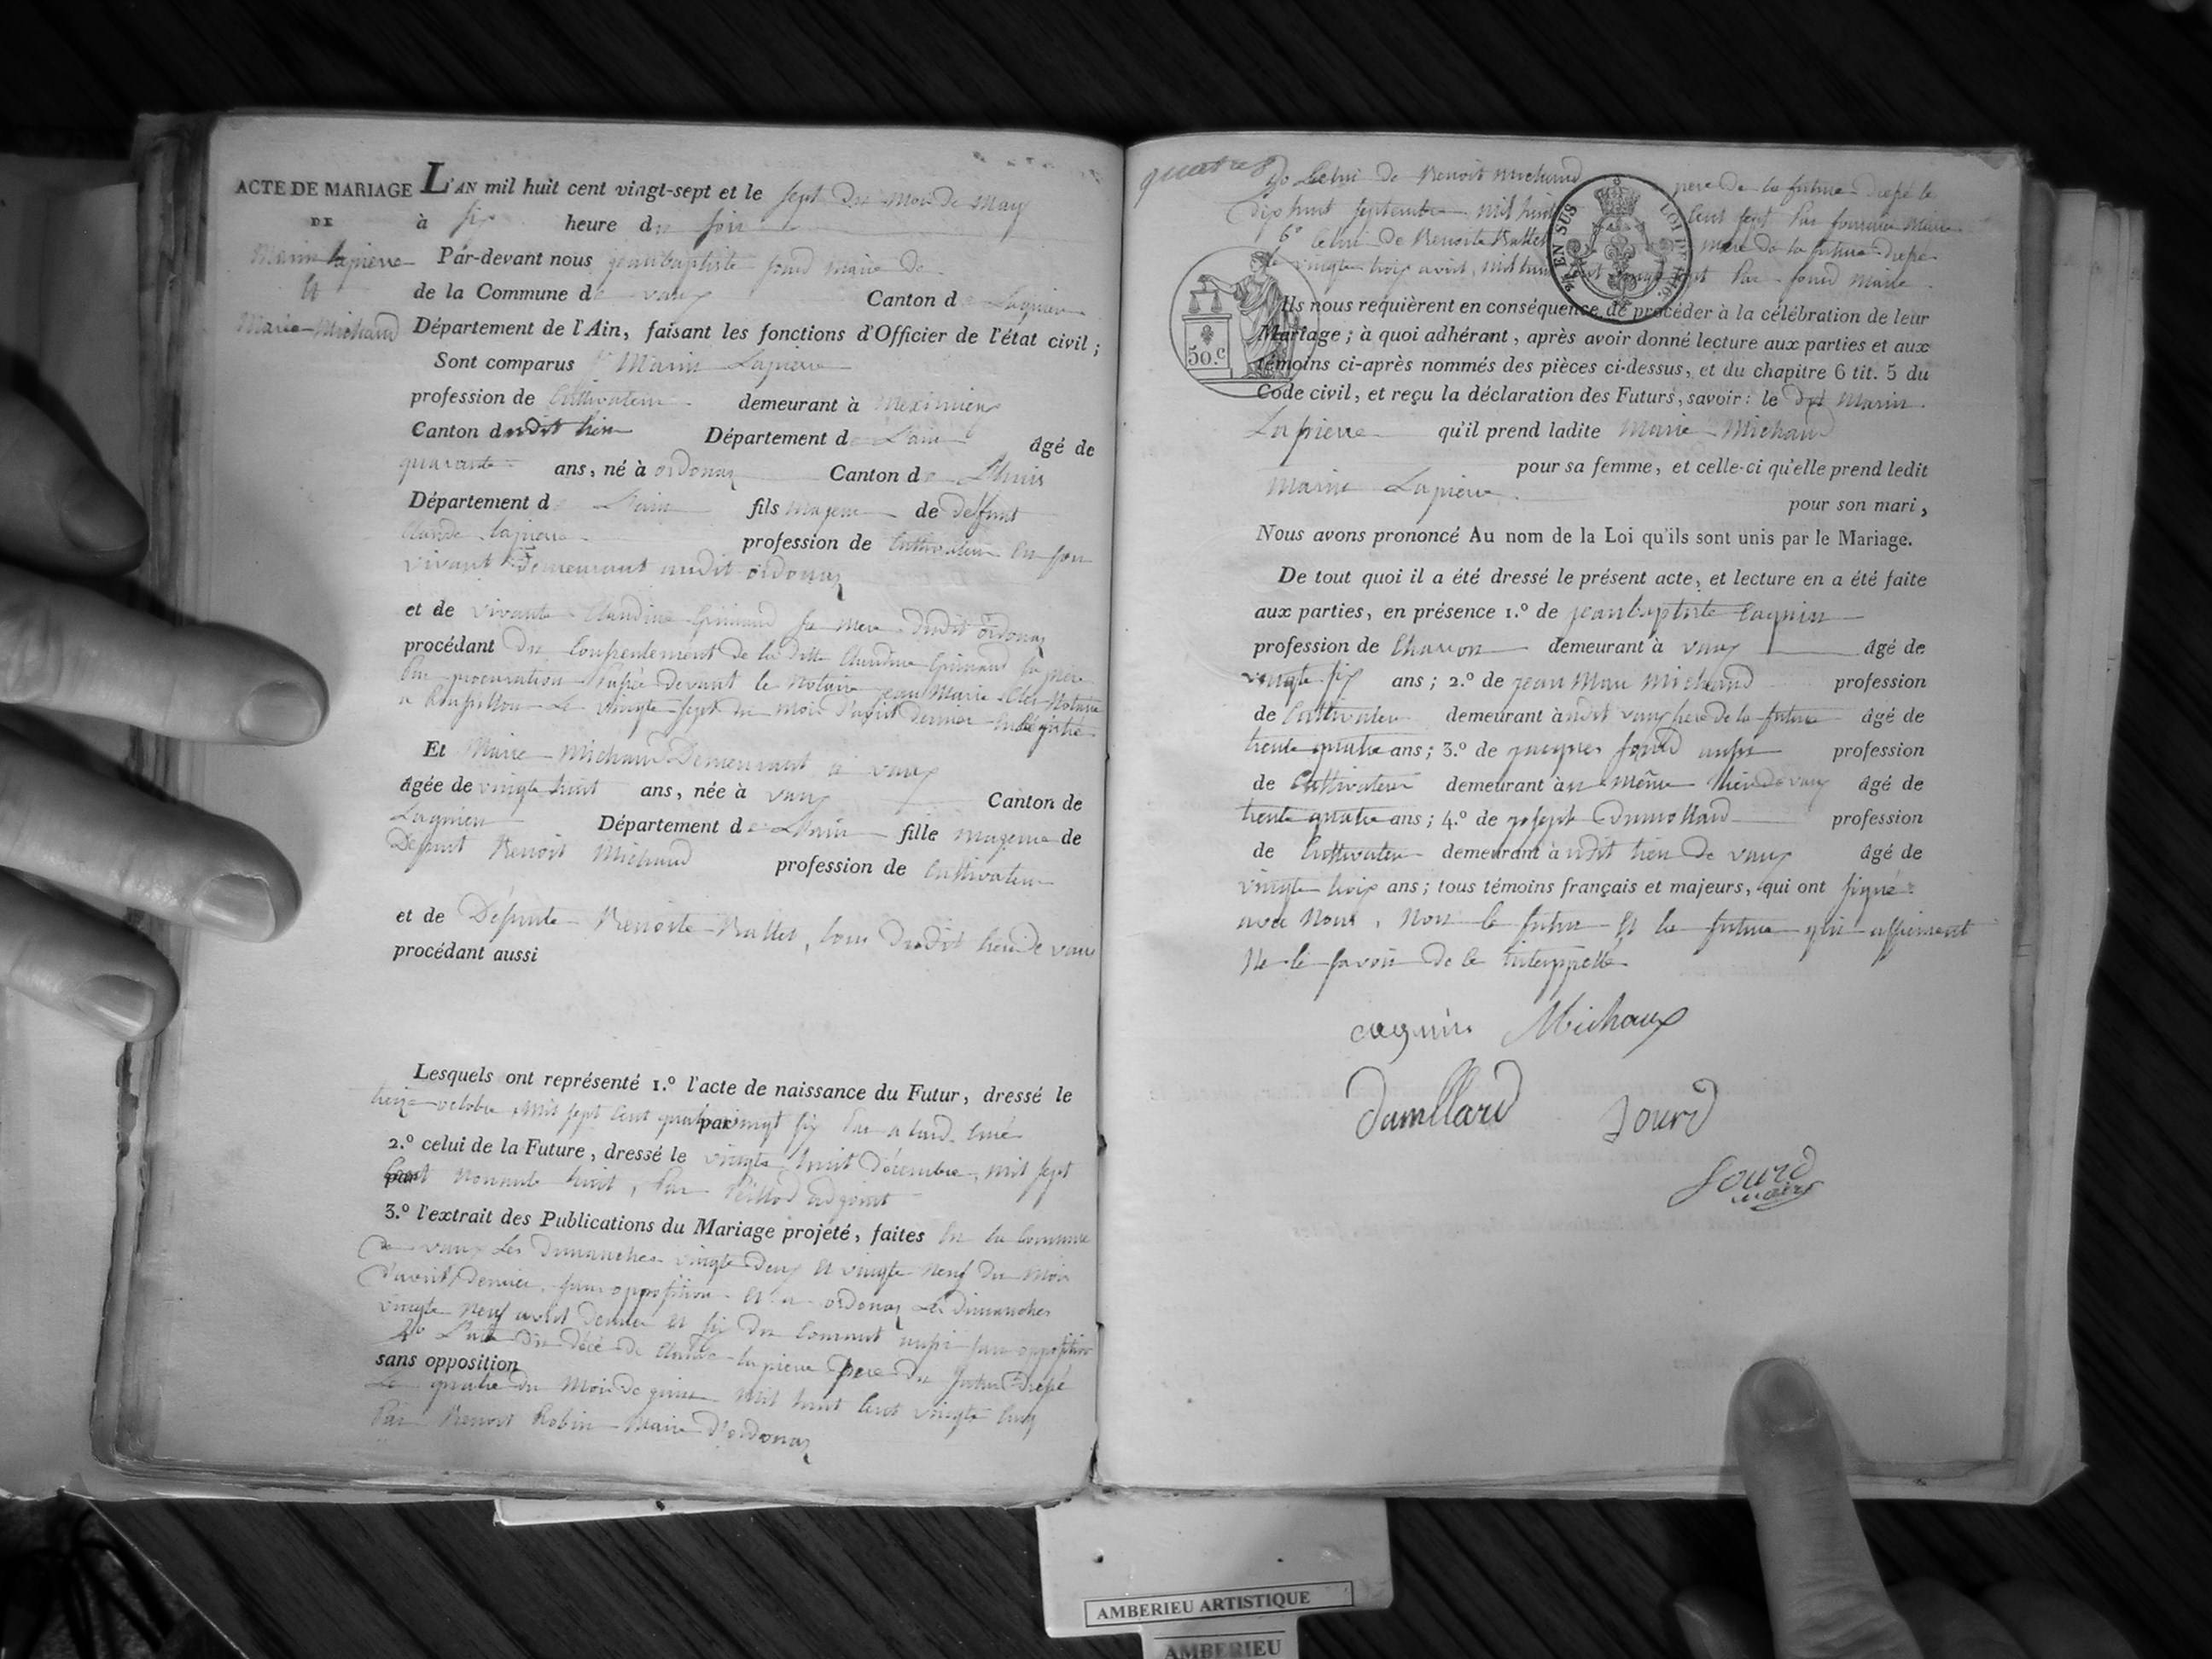 ACTE DE MARIAGE L'AN mil huit cent vingt-sept et le sept du mois de May
DE à six heure du soir
Marin Lapierre Par-devant nous jeanbaptiste jourd maire de
et de la Commune de vaux Canton de Lagnieu
Marie Michaud Département de l'Ain, faisant les fonctions d'Officier de l'état civil;
Sont comparus Marin Lapierre
profession de Cultivateur demeurant à Meximieux
Canton dudit lieu Département de Lain âgé de
quarante ans, né à ordonaz Canton de Lhuis
Département de Lain fils majeur de deffunt
Claude Lapierre profession de Cultivateur En son
vivant Demeurant audit ordonaz
et de vivante Claudine Grinand sa mere dudit ordonaz
procédant du Consentement de la ditte Claudine Grinand sa mere
Par procuration passée devant le Notaire jean Marie Notaire
a le vingte sept du mois d'avril dernier
Et Marie Michaud Demeurant a vaux
âgée de vingte huit ans, née à vaux Canton de
Lagnieu Département de Lain fille mageure de
Defunt Benoit Michaud profession de Cultivateur
et de Defunte Benoite Ballet, tous dudit lieu de vaux
procédant aussi
Lesquels ont représenté 1.º l'acte de naissance du Futur, dressé le
treize octobre mil sept cent quatre par vingt six Par Curé
2.º celui de la Future, dressé le vingte huit décembre, mil sept
par Cent nonante huit, Par adjoint
3.º l'extrait des Publications du Mariage projeté, faites En la Commune
de vaux Les dimanches vingte deux et vingte neuf du mois
d'avril dernier, sans opposition et a ordonaz Les dimanches
vingte neuf avril dernier et six du Courant aussi sans opposition
4º L'acte du décé de Claude Lapierre Pere du futur Drepé
sans opposition
Le quatre du mois de mil huit Cent vingte Cinq
Par Benoit Robin Maire D'ordonaz
quatre
5º Celui de Benoit Michaud pere de la future drepé le
Dix huit septembre mil huit Cent sept Par maire
6º Celui de Benoite Ballet mere de la future drepé
le vingte trois avril, mil huit Par jourd Maire
EN SUS
LOI D
50.c
Ils nous requièrent en conséquence de procéder à la célébration de leur
Mariage; à quoi adhérant, après avoir donné lecture aux parties et aux
témoins ci-après nommés des pièces ci-dessus, et du chapitre 6 tit. 5 du
Code civil, et reçu la déclaration des Futurs, savoir: le dit Marin
Lapierre qu'il prend ladite Marie Michaud
pour sa femme, et celle-ci qu'elle prend ledit
Marin Lapierre pour son mari,
Nous avons prononcé Au nom de la Loi qu'ils sont unis par le Mariage.
De tout quoi il a été dressé le présent acte, et lecture en a été faite
aux parties, en présence 1.º de jeanbaptiste Caquin
profession de Charron demeurant à vaux âgé de
vingte six ans; 2.º de jean Marie Michaud profession
de Cultivateur demeurant à udit vaux frere de la future âgé de
trente quatre ans; 3.º de jacques jourd aussi profession
de Cultivateur demeurant à u même lieu de vaux âgé de
trente quatre ans; 4.º de joseph Dumollard profession
de Cultivateur demeurant à udit lieu de vaux âgé de
vingte trois ans; tous témoins français et majeurs, qui ont signé
avec Nous, Non le futur et la future qui affirment
Ne le savoir de ce interppellé
caquin Michaux
dumllard Jourd
Jourd
maire
AMBERIEU ARTISTIQUE
AMBERIEU